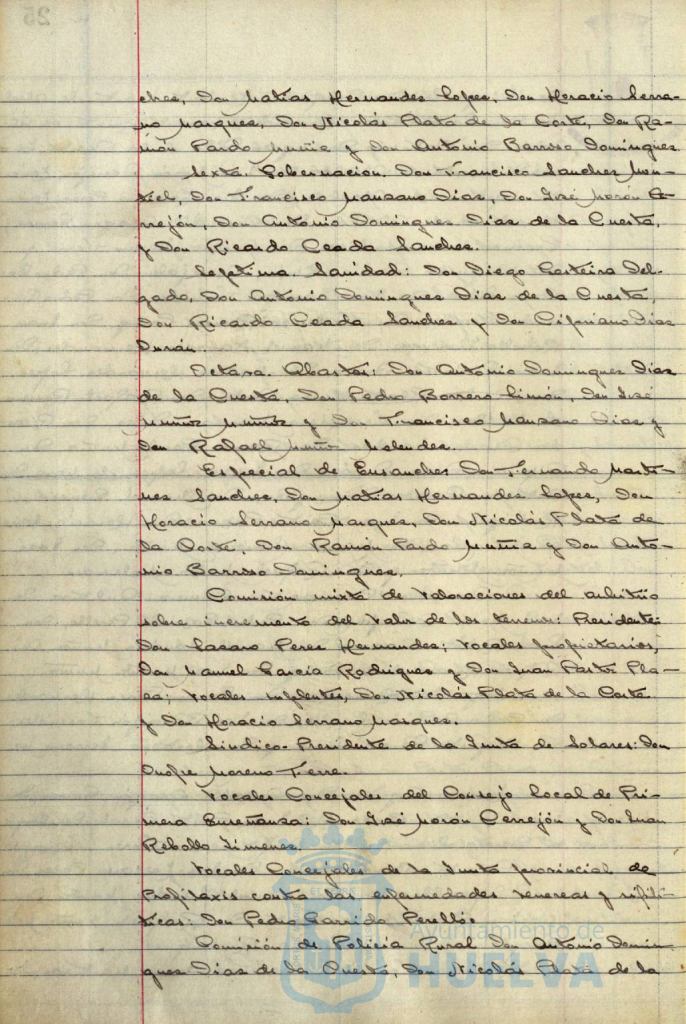 ches, Don Matias Hernandes Lopes, Don Horacio Serra-
no Marques, Don Nicolás Plata de la Corte, Don Ra-
món Pardo Muñis y Don Antonio Barroso Domingues.
Sexta. Gobernacion. Don Francisco Sanches Mon-
tiel, Don Francisco Mansano Dias, Don José Morón Ce-
rrejón, Don Antonio Domingues Dias de la Cuesta,
y Don Ricardo Ceada Sanches.
Septima. Sanidad: Don Diego Garteira Del-
gado, Don Antonio Domingues Dias de la Cuesta,
Don Ricardo Ceada Sanches y Don Cipriano Dias
Durán.
Octava. Abastos: Don Antonio Domingues Dias
de la Cuesta, Don Pedro Borrero Limón, Don José
Muños Muños y Don Francisco Mansano Dias y
Don Rafael Muños Melendes.
Especial de Ensanches Don Fernando Marti-
nes Sanches, Don Matias Hernandes Lopes, Don
Horacio Serrano Marques, Don Nicolás Plata de
la Corte, Don Ramón Pardo Muñis y Don Anto-
nio Barroso Domingues.
Comisión mixta de valoraciones del arbitrio
sobre incremento del valor de los terrenos: Presidente:
Don Lasaro Peres Hernandes; vocales propietarios,
Don Manuel García Rodrigues y Don Juan Pastor Pla-
sa; vocales suplentes, Don Nicolás Plata de la Corte
y Don Horacio Serrano Marques.
Sindico-Presidente de la Junta de Solares: Don
Onofre Moreno Ferre.
Vocales Concejales del Consejo Local de Pri-
mera Enseñanza: Don José Morón Cerrejón y Don Juan
Rebollo Jimenes.
Vocales Concejales de la Junta provincial de
Profilaxis contra las enfermedades venereas y sifilí-
ticas: Don Pedro Garrido Perelló.
Comisión de Policía Rural Don Antonio Domin-
gues Dias de la Cuesta, Don Nicolás Plata de la
Ayuntamiento de
HUELVA